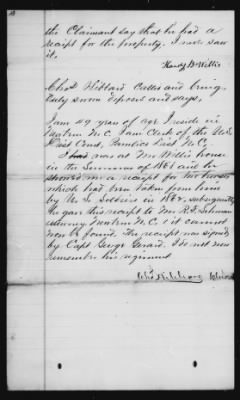 the Claimant say that he had a
receipt for the property. I never saw
it.
Hardy B Willis
Chas Hibbard Called and being
duly sworn deposes and says,
I am 49 years of age. I reside in
N.C. I am Clerk of the U.S.
Dist Court, Pamlico Dist N.C.
I was at Mr Willis house
in the Summer of 1865 and he
showed me a receipt for two horses
which had been taken from him
by U.S. Soldiers in 1862, subsequently
he gave this receipt to Mr R.F. Lehman
attorney N.C. & it cannot
now be found. The receipt was signed
by Capt George Gerard. I do not now
remember his regiment
Chas Hibbard